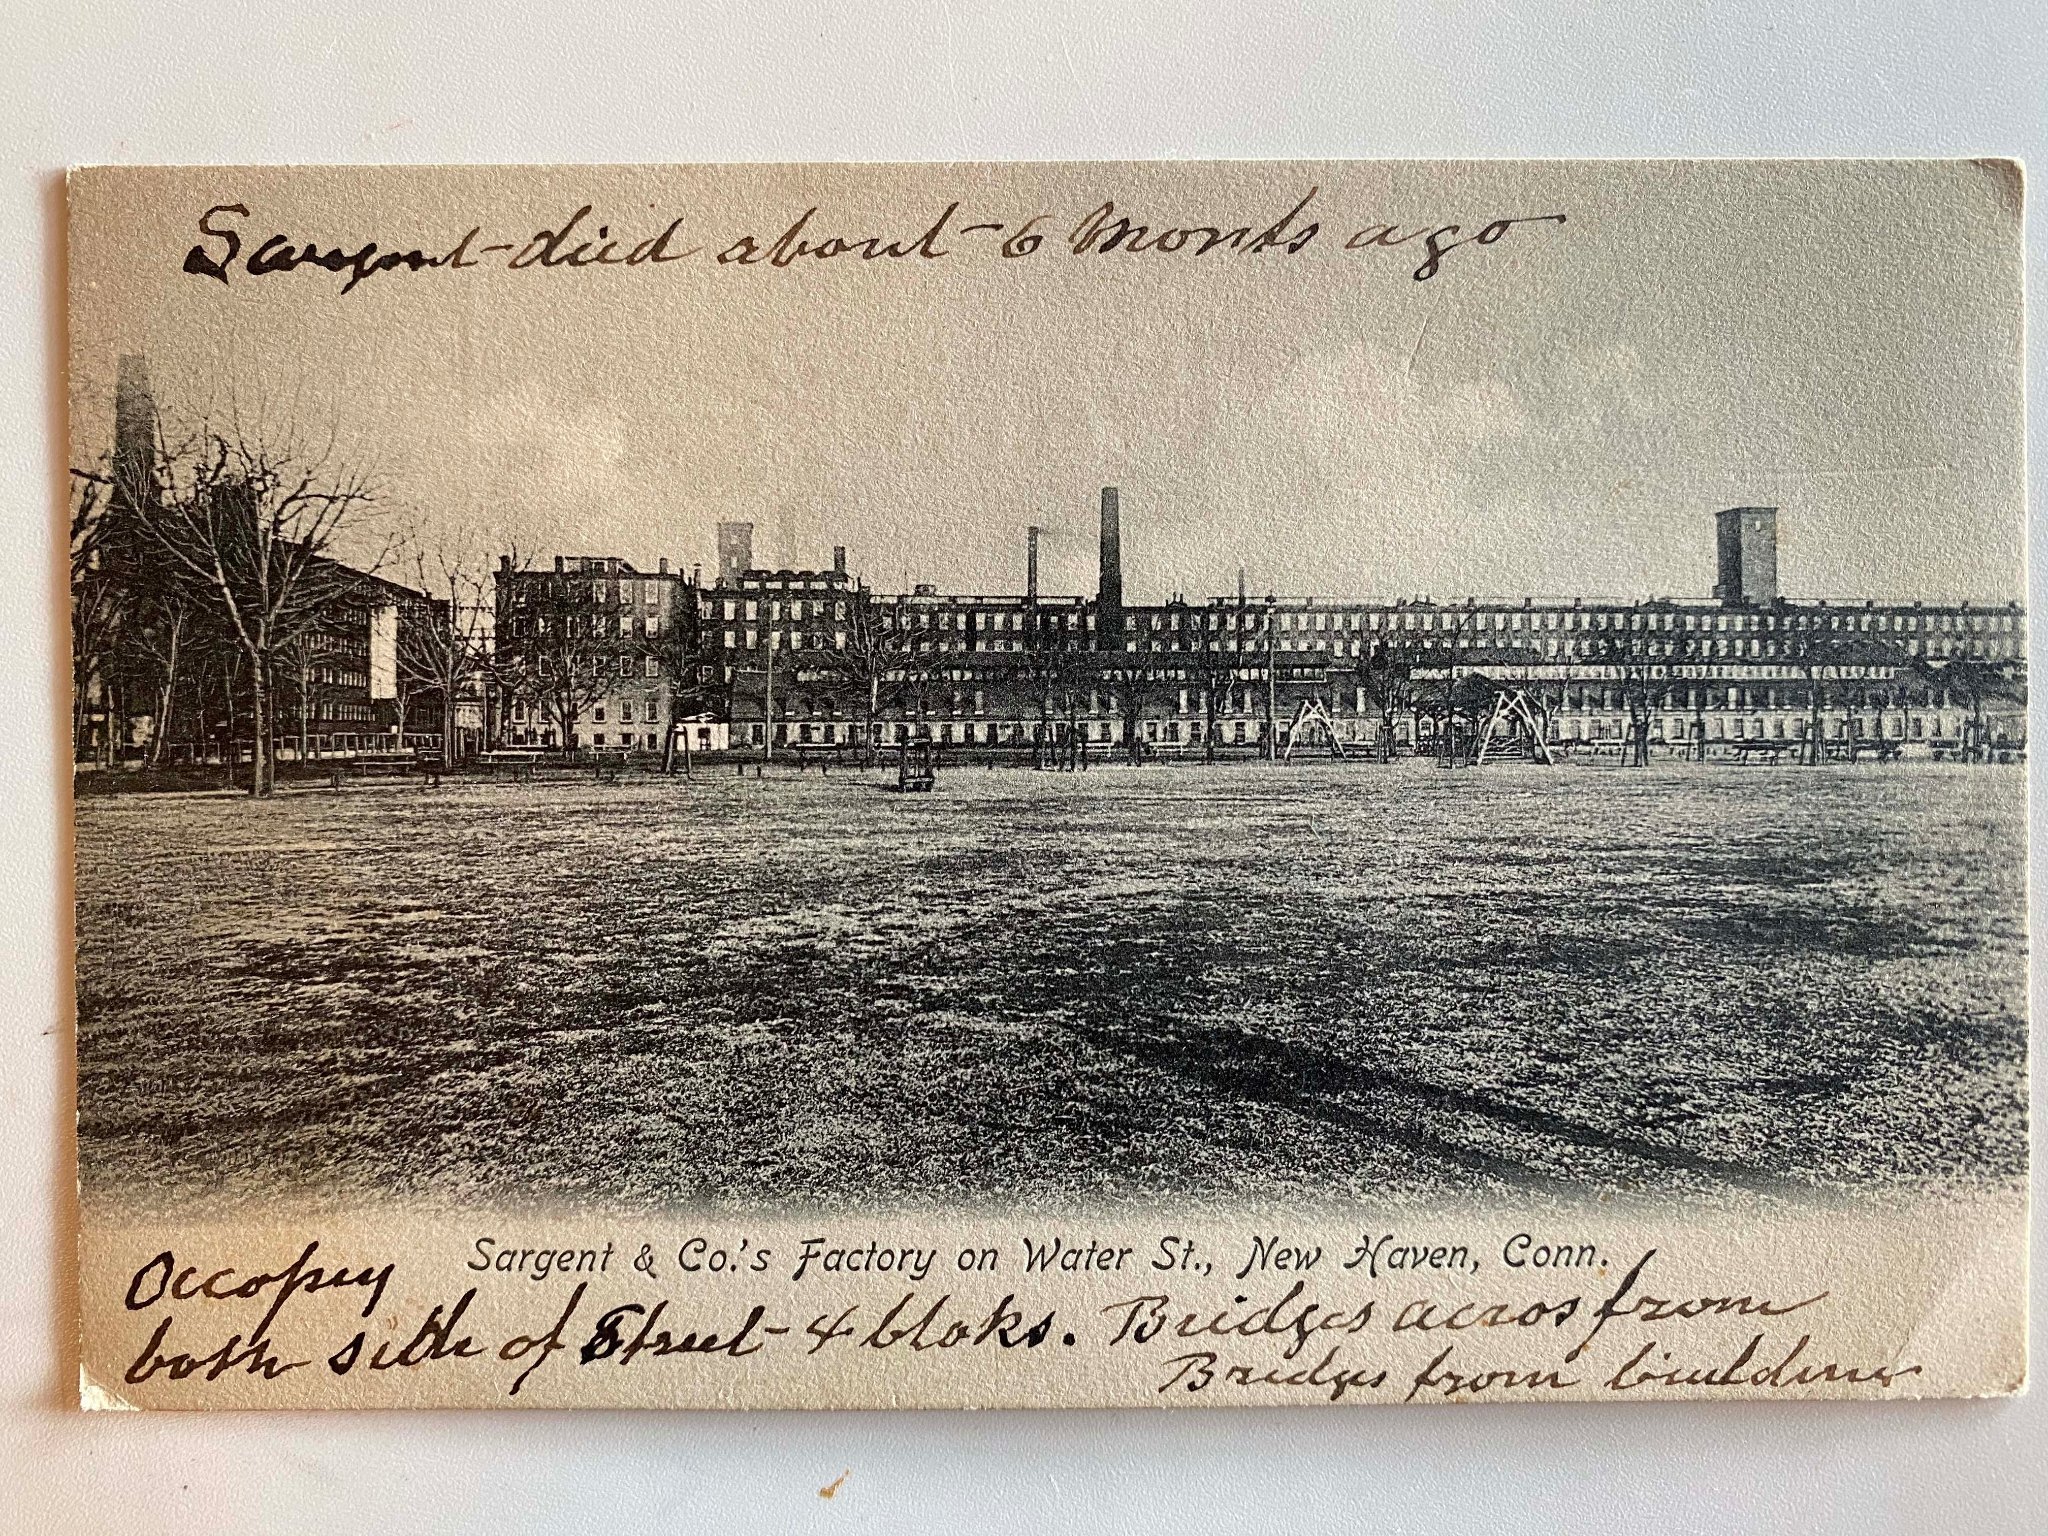 Sargent died about 6 Monts ago
Sargent & Co.'s Factory on Water St., New Haven, Conn.
Occopey
both side of Street - 4 bloks. Bridges acros from
Bridges from buildins